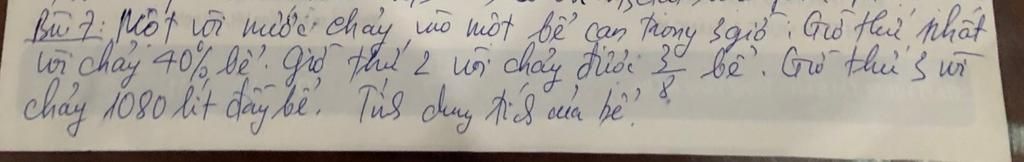 Bài 7: Một vòi nước chảy vào một bể cạn trong 3 giờ. Giờ thứ nhất
vòi chảy 40% bể. Giờ thứ 2 vòi chảy được 3/8 bể. Giờ thứ 3 vòi
chảy 1080 lít đầy bể. Tính dung tích của bể.